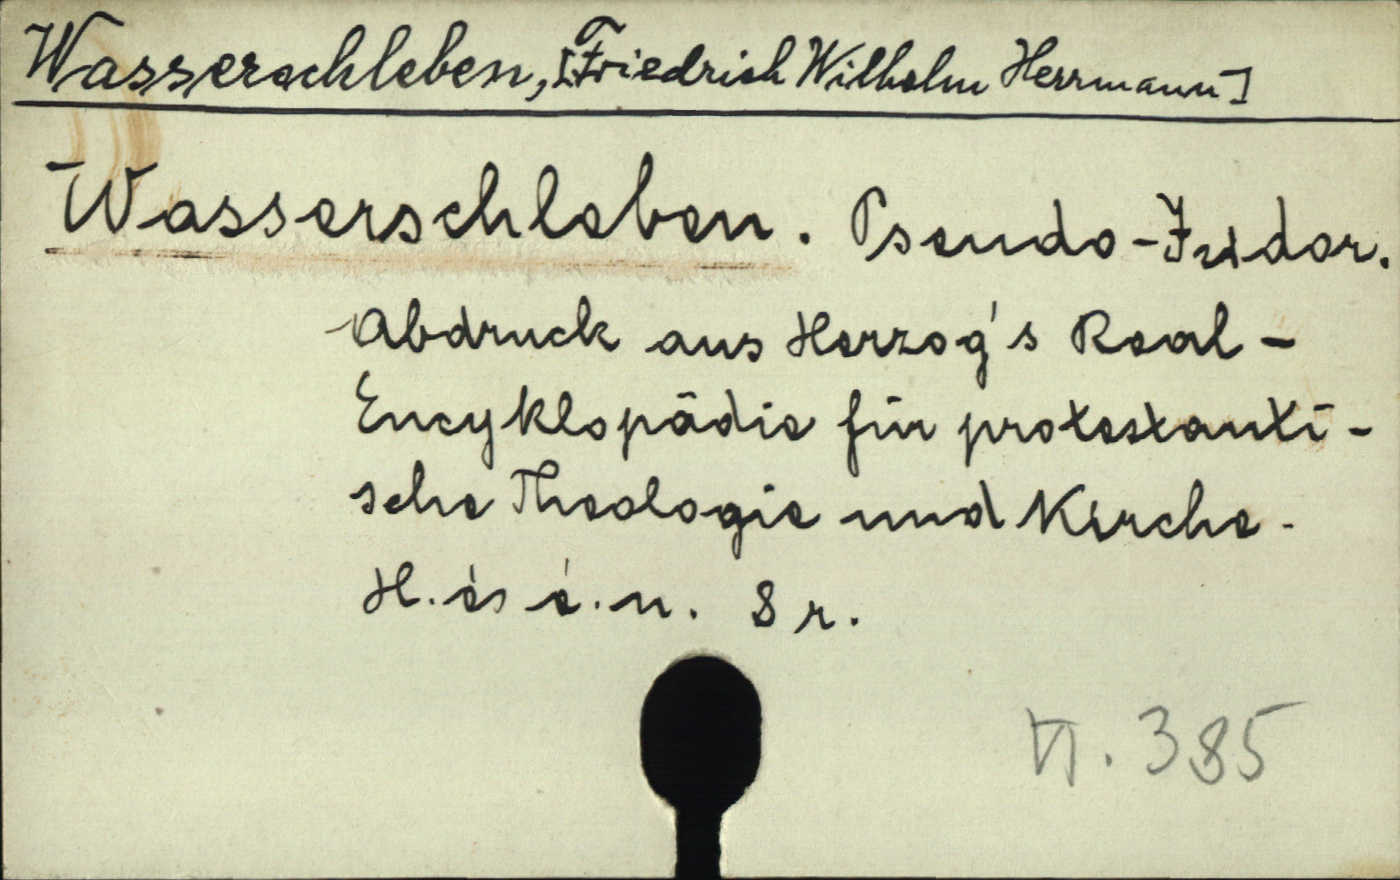 Wasserschleben, [Friedrich Wilhelm Herrmann]
Wasserschleben. Pseudo-Isidor.
Abdruck aus Herzog's Real-
Encyklopädie für protestanti-
sche Theologie und Kirche.
H. és é. n. 8 r.
385